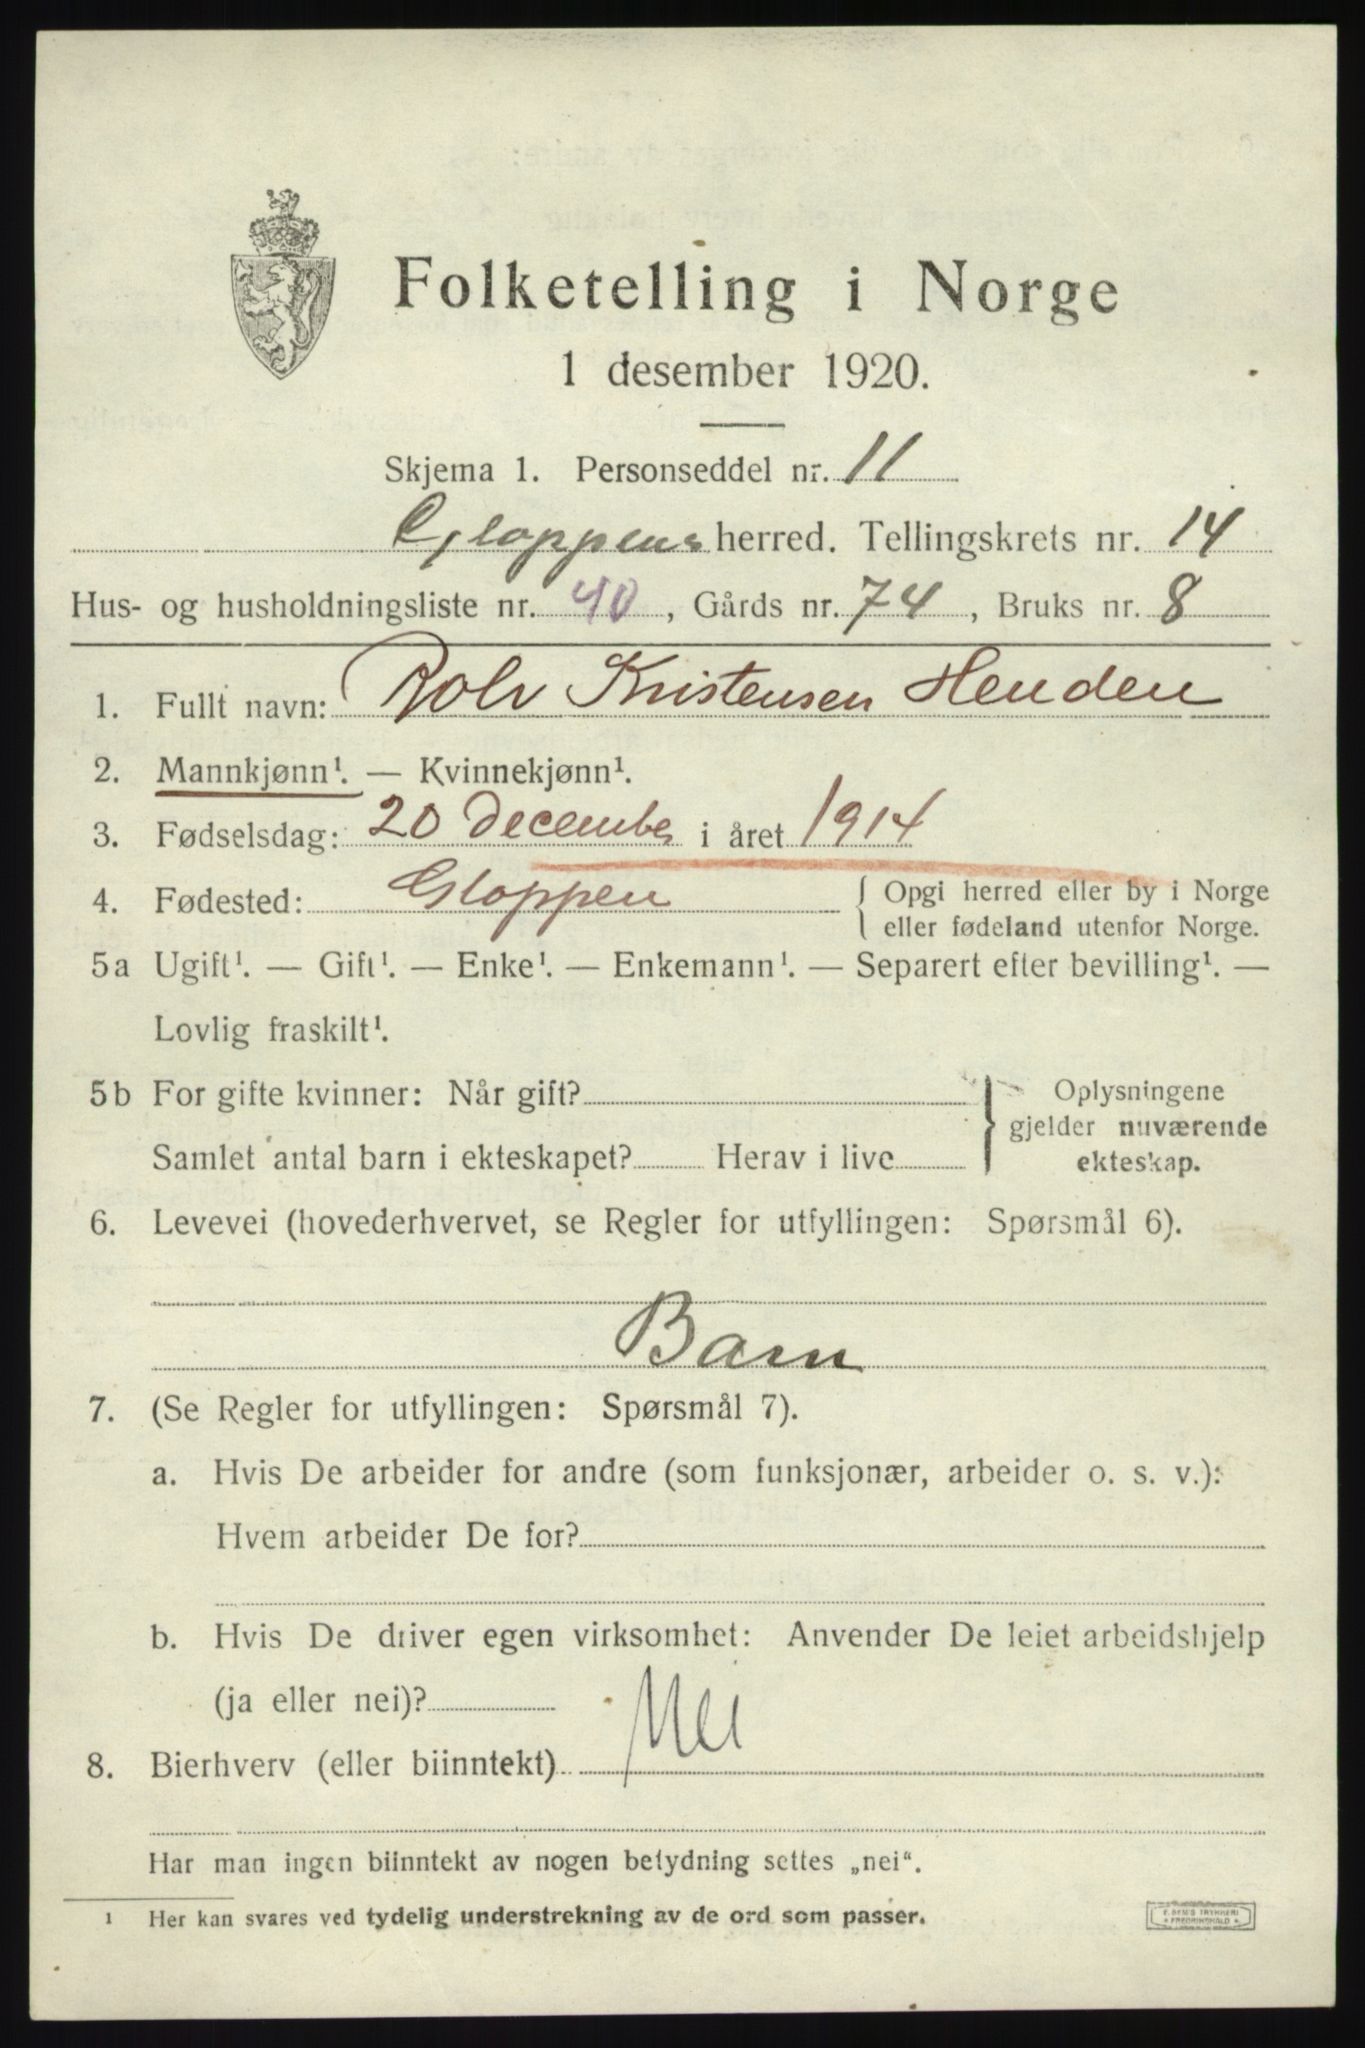 Folketelling i Norge
1 desember 1920.
Skjema 1. Personseddel nr. 11
Gloppens herred. Tellingskrets nr. 14
Hus- og husholdningsliste nr. 40, Gårds nr. 74, Bruks nr. 8
1. Fullt navn: Rolv Kristensen Henden
2. Mannkjønn¹. — Kvinnekjønn¹.
3. Fødselsdag: 20 december i året 1914
4. Fødested: Gloppen { Opgi herred eller by i Norge
eller fødeland utenfor Norge.
5a Ugift¹. — Gift¹. — Enke¹. — Enkemann¹. — Separert efter bevilling¹. —
Lovlig fraskilt¹.
5b For gifte kvinner: Når gift? } Oplysningene
gjelder nuværende
Samlet antal barn i ekteskapet? Herav i live
ekteskap.
6. Levevei (hovederhvervet, se Regler for utfyllingen: Spørsmål 6).
Barn
7. (Se Regler for utfyllingen: Spørsmål 7).
a. Hvis De arbeider for andre (som funksjonær, arbeider o. s. v.):
Hvem arbeider De for?
b. Hvis De driver egen virksomhet: Anvender De leiet arbeidshjelp
(ja eller nei)?
8. Bierhverv (eller biinntekt) Nei
Har man ingen biinntekt av nogen betydning settes „nei“.
¹ Her kan svares ved tydelig understrekning av de ord som passer.